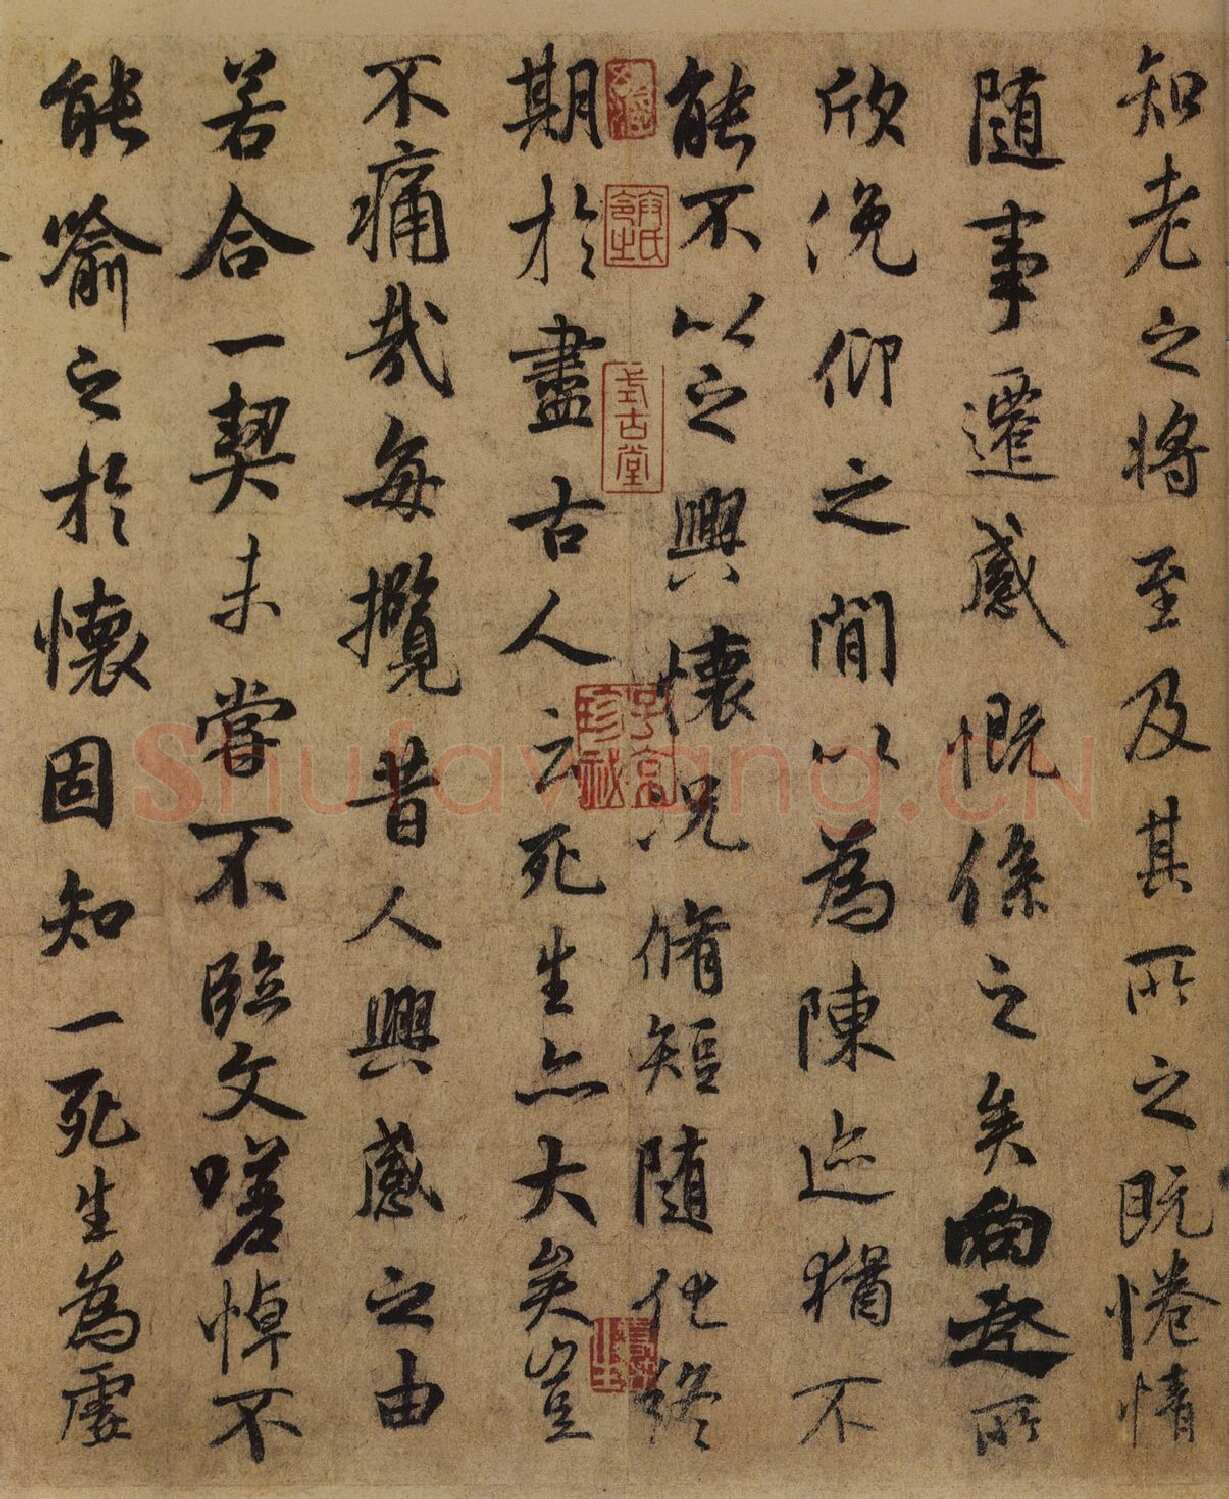 知老之將至及其所之既惓情
隨事遷感慨係之矣向之所
欣俛仰之閒以為陳迹猶不
能不以之興懷況脩短隨化終
期於盡古人云死生亦大矣豈
不痛哉每攬昔人興感之由
若合一契未嘗不臨文嗟悼不
能喻之於懷固知一死生為虛
式古堂
子京珍秘
Shufawang.CN